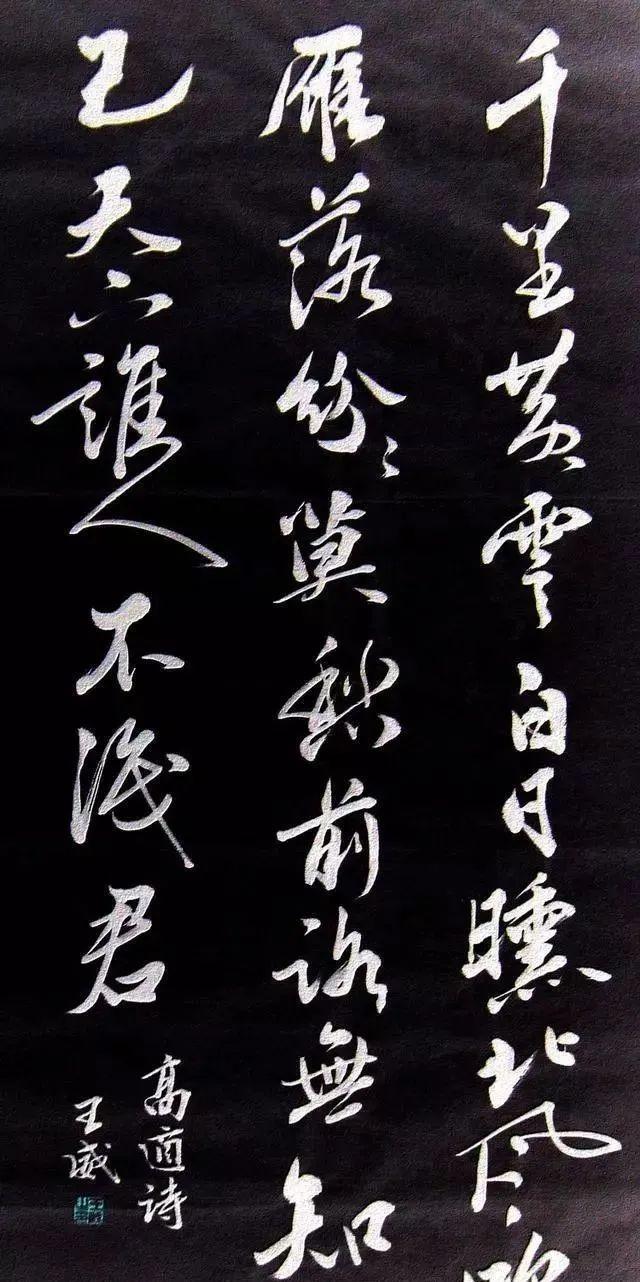 千里黄雲白日曛北風吹
雁落紛〻莫愁前路無知
己天下誰人不識君
高適詩
王威